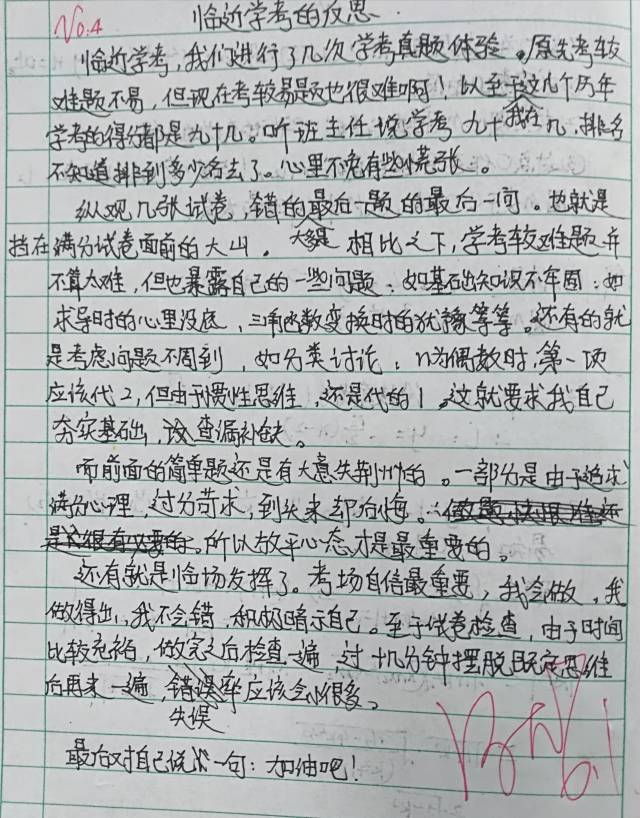 No.4
临近学考的反思
临近学考，我们进行了几次学考真题体验。原先考较
难题不易，但现在考较易题也很难啊！以至于这几个历年
学考的得分都是九十几。听班主任说学考九十几，我在排名
不知道排到多少名去了。心里不免有些慌张。
纵观几张试卷，错的最后一题的最后一问。也就是
挡在满分试卷面前的大山。相比之下，学考较难题并
不算太难，但也暴露自己的一些问题：如基础知识不牢固：如
求导时的心里没底，三角函数变换时的犹豫等等。还有的就
是考虑问题不周到，如分类讨论：n为偶数时，第一项
应该代2，但由于惯性思维，还是代的1。这就要求我自己
夯实基础，查漏补缺。
而前面的简单题还是有大意失荆州的。一部分是由于追求
满分心理，过分苛求，到头来却后悔。
所以放平心态才是最重要的。
还有就是临场发挥了。考场自信最重要，我会做，我
做得出，我不会错，积极暗示自己。至于试卷检查，由于时间
比较充裕，做完之后检查一遍，过十几分钟摆脱既定思维
后再来一遍，失误率应该会小很多。
最后对自己说一句：加油吧！